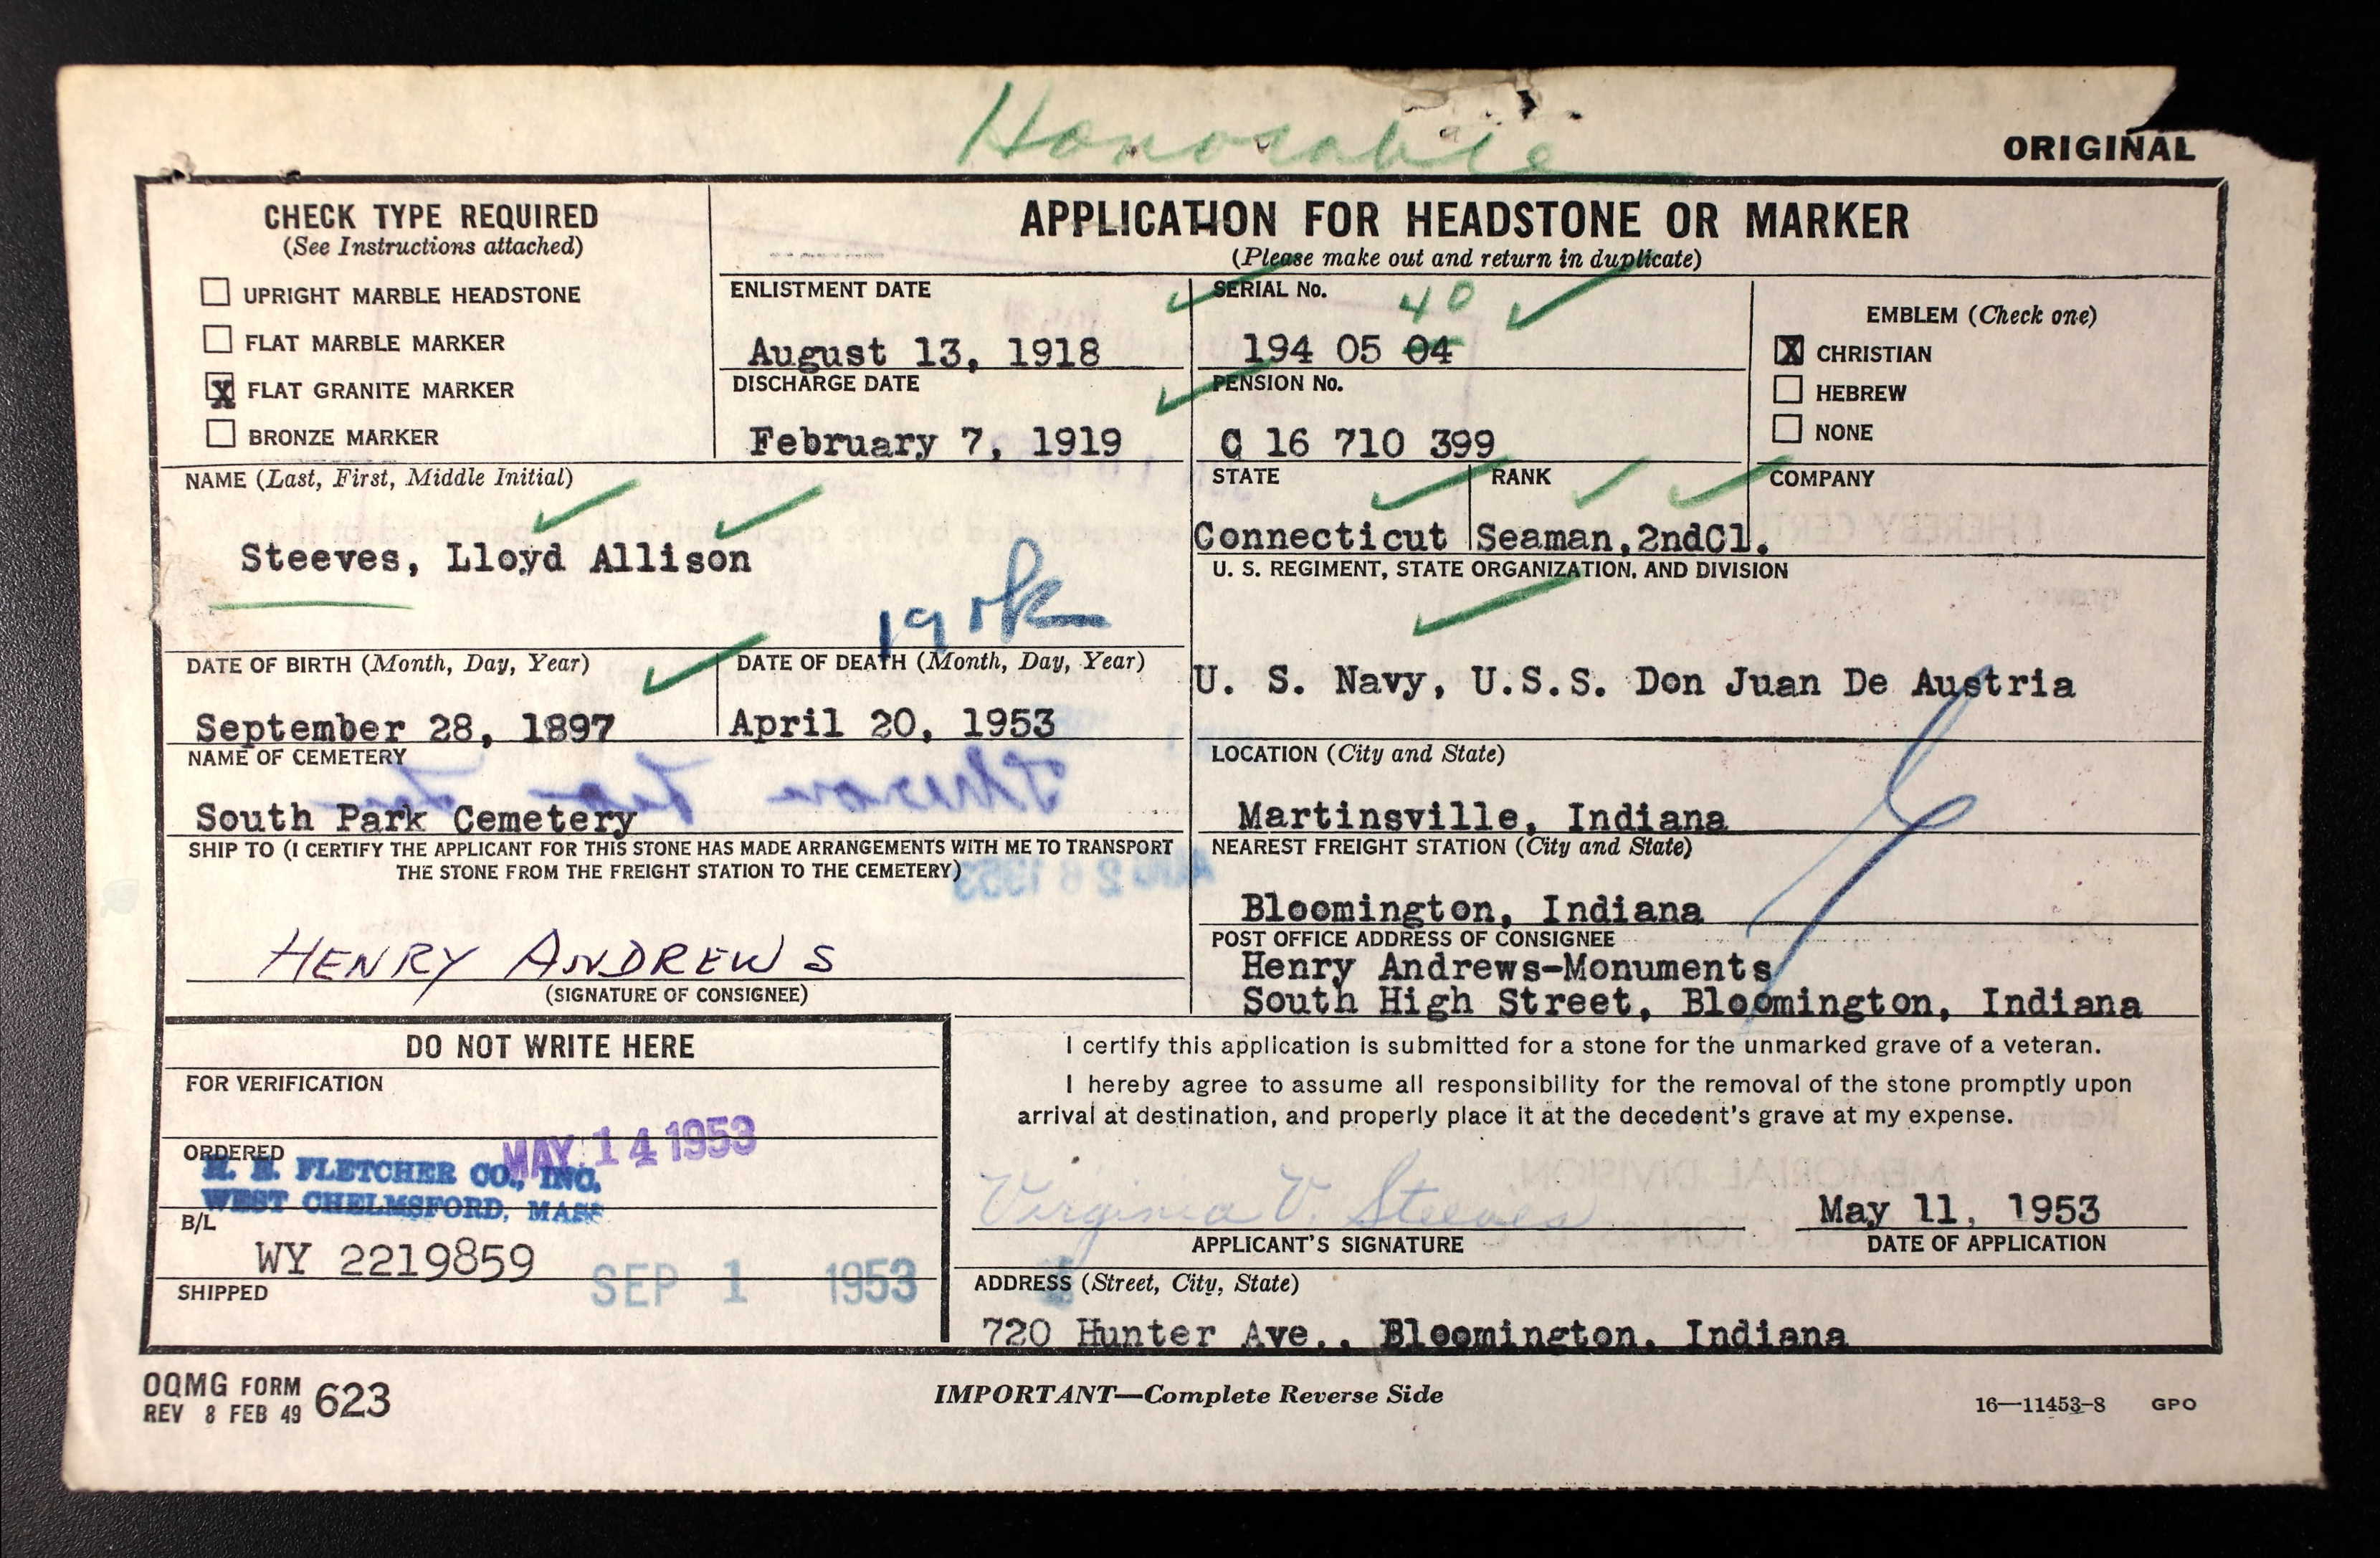 Honorable
ORIGINAL
CHECK TYPE REQUIRED
(See Instructions attached)
UPRIGHT MARBLE HEADSTONE
FLAT MARBLE MARKER
X FLAT GRANITE MARKER
BRONZE MARKER
APPLICATION FOR HEADSTONE OR MARKER
(Please make out and return in duplicate)
ENLISTMENT DATE
August 13, 1918
DISCHARGE DATE
February 7, 1919
SERIAL No.
40
194 05 04
PENSION No.
C 16 710 399
EMBLEM (Check one)
X CHRISTIAN
HEBREW
NONE
NAME (Last, First, Middle Initial)
Steeves, Lloyd Allison
STATE
Connecticut
RANK
Seaman,2ndCl.
COMPANY
U. S. REGIMENT, STATE ORGANIZATION, AND DIVISION
U. S. Navy, U.S.S. Don Juan De Austria
DATE OF BIRTH (Month, Day, Year)
September 28, 1897
DATE OF DEATH (Month, Day, Year)
April 20, 1953
NAME OF CEMETERY
South Park Cemetery
LOCATION (City and State)
Martinsville, Indiana
SHIP TO (I CERTIFY THE APPLICANT FOR THIS STONE HAS MADE ARRANGEMENTS WITH ME TO TRANSPORT
THE STONE FROM THE FREIGHT STATION TO THE CEMETERY)
HENRY ANDREWS
(SIGNATURE OF CONSIGNEE)
NEAREST FREIGHT STATION (City and State)
Bloomington, Indiana
POST OFFICE ADDRESS OF CONSIGNEE
Henry Andrews-Monuments
South High Street, Bloomington, Indiana
DO NOT WRITE HERE
FOR VERIFICATION
MAY 14 1953
ORDERED
H. E. FLETCHER CO., INC.
WEST CHELMSFORD, MASS
B/L
WY 2219859
SHIPPED
SEP 1 1953
I certify this application is submitted for a stone for the unmarked grave of a veteran.
I hereby agree to assume all responsibility for the removal of the stone promptly upon
arrival at destination, and properly place it at the decedent's grave at my expense.
Virginia V. Steeves
APPLICANT'S SIGNATURE
May 11, 1953
DATE OF APPLICATION
ADDRESS (Street, City, State)
720 Hunter Ave., Bloomington, Indiana
OQMG FORM 623
REV 8 FEB 49
IMPORTANT—Complete Reverse Side
16—11453-8 GPO